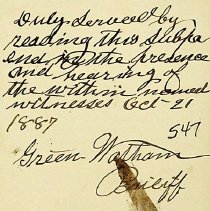 Duly Served by
reading this Subpa
ena in the presence
and hearing of
the within named
witnesses Oct-21
1887
547
Green Watham
Bailiff